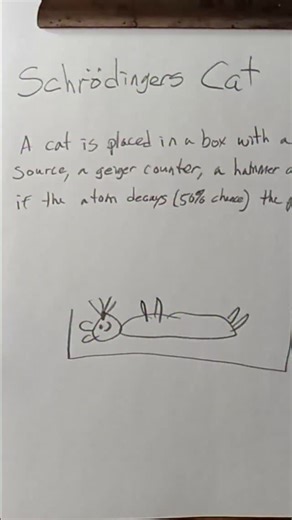 Schrödingers Cat
A cat is placed in a box with a
source, a geiger counter, a hammer
if the atom decays (50% chance) the